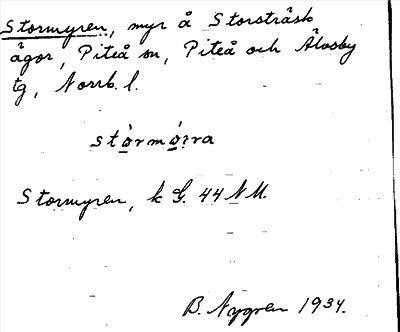 Stormyren, myr å Storsträsk
ägor, Piteå sn, Piteå och Älvsby
tg, Norrb. l.
Stormyren, k G. 44 NM.
B. Nygren 1934.